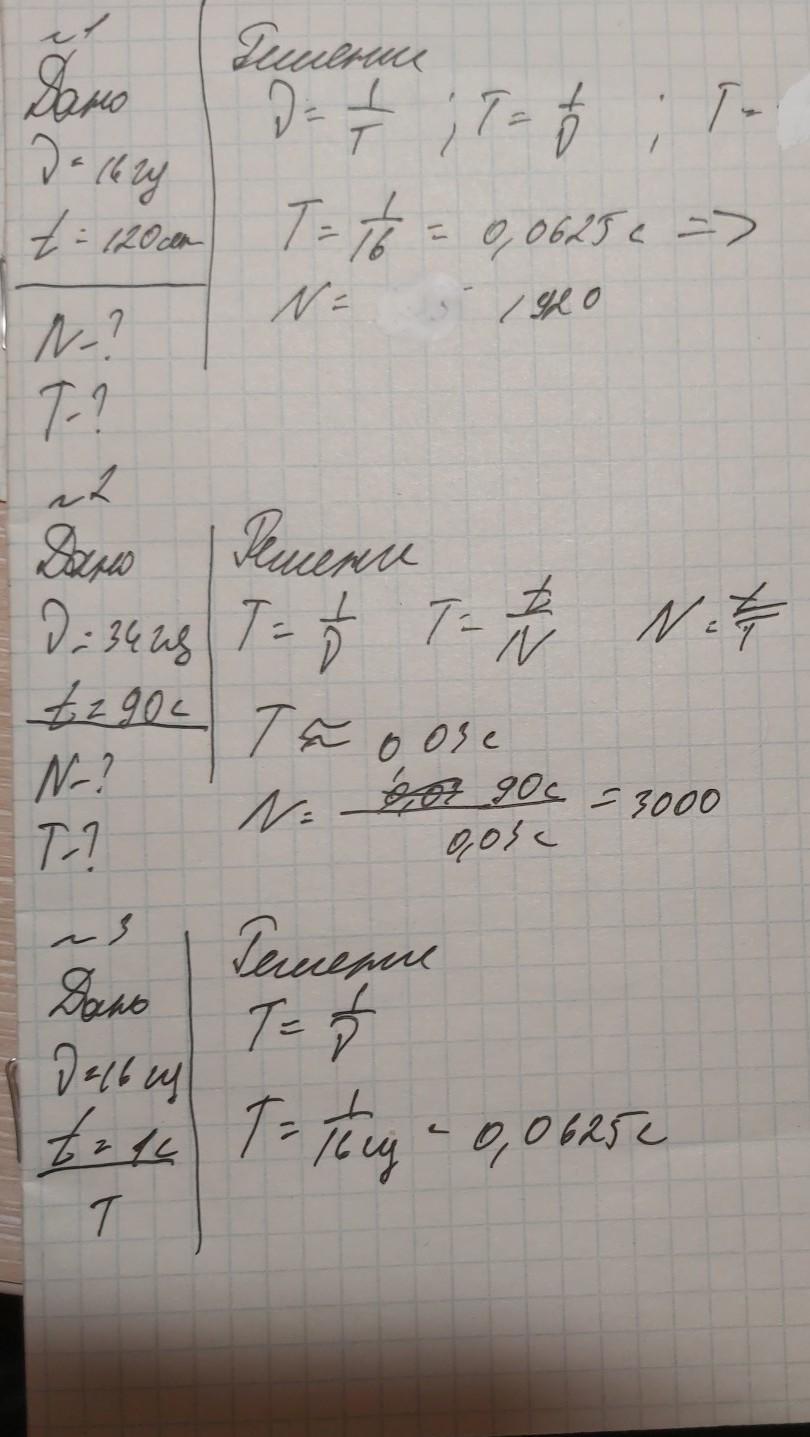 №1
Дано
ν = 16 гц
t = 120 сек
N-?
T-?
Решение
ν = 1/T ; T = 1/ν ; T =
T = 1/16 = 0,0625 с =>
N = 1920
№2
Дано
ν = 34 гц
t = 90 с
N-?
T-?
Решение
T = 1/ν T = t/N N = t/T
T ≈ 0,03 с
N = 90с/0,03с = 3000
№3
Дано
ν = 16 гц
t = 1с
T
Решение
T = 1/ν
T = 1/16гц = 0,0625 с